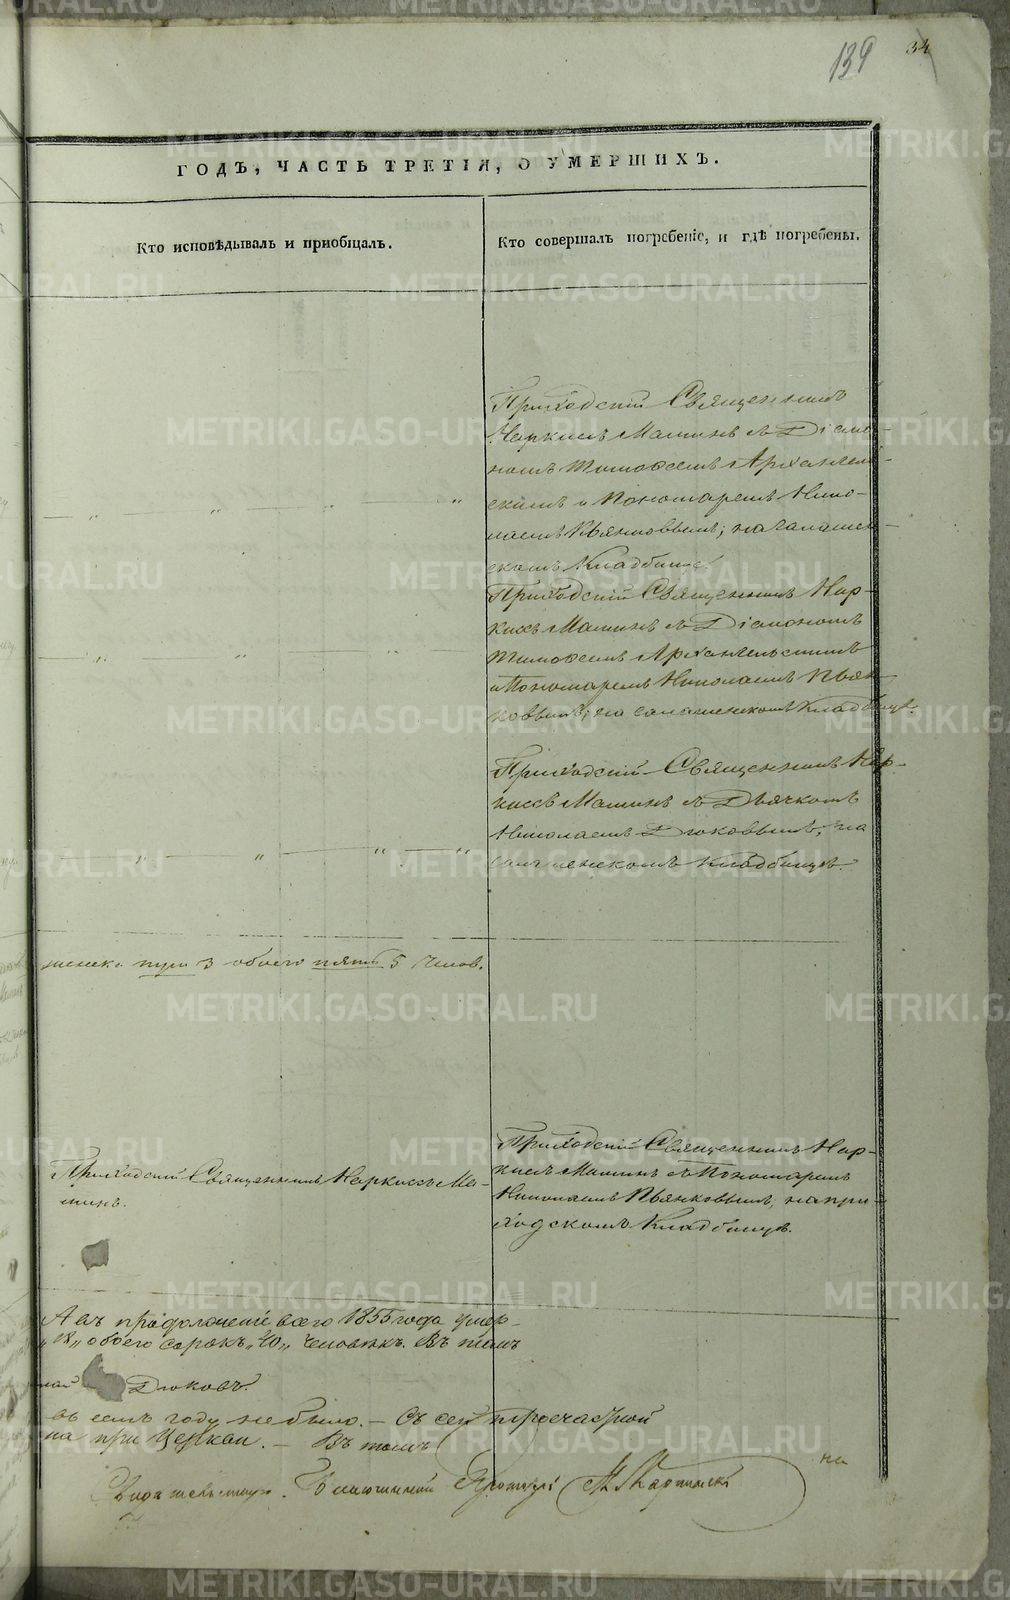 139 34
ГОДЪ, ЧАСТЬ ТРЕТІЯ, О УМЕРШИХЪ.
Кто исповѣдывалъ и пріобщалъ.
Кто совершалъ погребеніе, и гдѣ погребены.
Приходскій Священникъ
Наркисъ Маминъ съ Діако-
номъ Тимоѳеемъ Архангель-
скимъ и Пономаремъ Нико-
лаемъ Пьянковымъ; на Галашен-
скомъ Кладбищѣ.
Приходскій Священникъ Нар-
кисъ Маминъ съ Діакономъ
Тимоѳеемъ Архангельскимъ
и Пономаремъ Николаемъ Пьян-
ковымъ; на Галашенскомъ Кладбищѣ.
Приходскій Священникъ Нар-
киссъ Маминъ съ Дьячкомъ
Николаемъ Дюковымъ, на
Кладбищѣ.
женска три 3 обоего пять 5 челов.
Приходскій Священникъ Наркиссъ Ма-
минъ.
Приходскій Священникъ Нар-
кисъ Маминъ съ Пономаремъ
Николаемъ Пьянковымъ, на при-
ходскомъ Кладбищѣ.
А въ продолженіе всего 1855 года умер-
18„ обоего сорокъ „40„ человѣкъ. Въ томъ
Дюковъ.
въ семъ году не было. — Съ сею
на при Церкви. — Въ томъ
Благочинный
METRIKI.GASO-URAL.RU